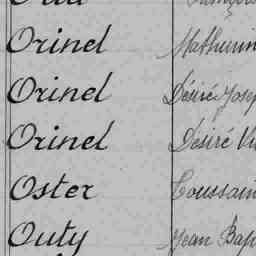 Orinel Mathurin
Orinel Désiré Josep
Orinel Désiré Vi
Oster Toussain
Outy Jean Bap